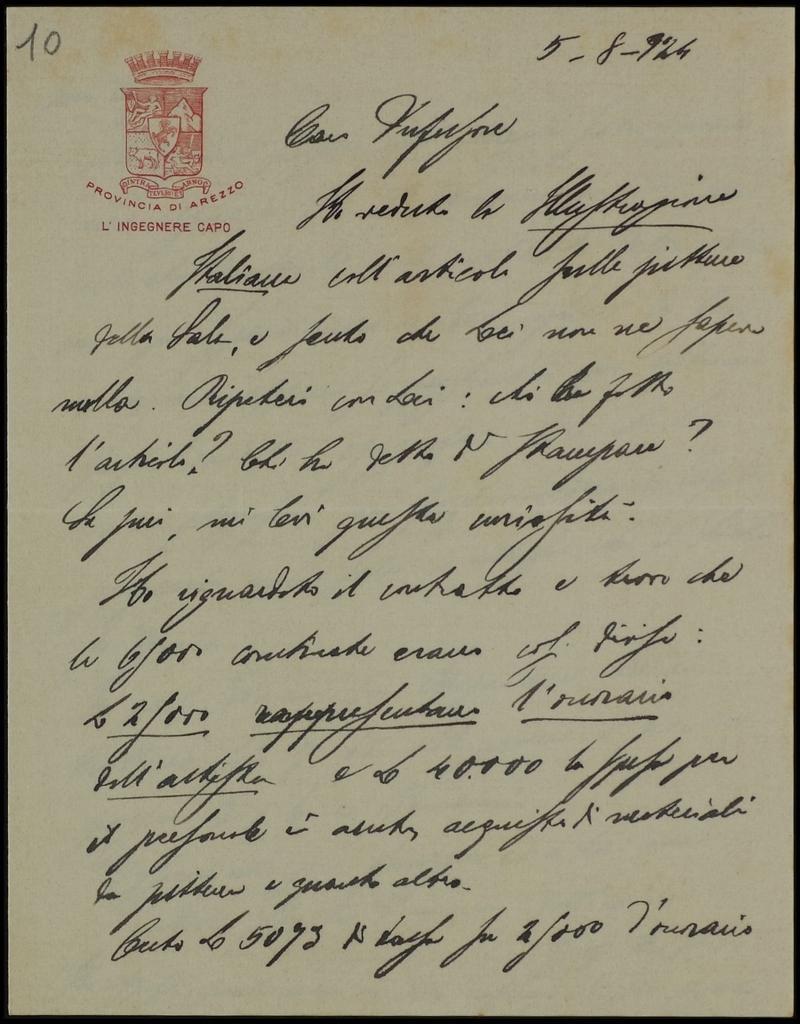 10
5-8-924
INTRA TEVERIM ARNOQ
PROVINCIA DI AREZZO
L'INGEGNERE CAPO
Caro Professore
Ho veduto la Illustrazione
Italiana coll'articolo sulle pitture
della Sala, e sento che Lei non ne sapeva
nulla. Ripeterei con Lei: chi ha fatto
l'articolo? Chi ha detto di stampare?
Se può, mi levi questa curiosità.
Ho riguardato il contratto e trovo che
le 65000 erano così divise:
L 25000 rappresentano l'onorario
dell'artista e L 40.000 la spesa per
il personale acquisto di materiali
da pittura e quanto altro.
Certo L 5073 di tassa su 25000 d'onorario